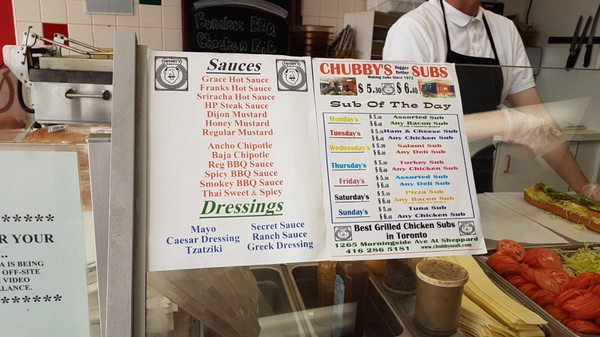 Bandless BBQ
Chicken Bowl
Sauces
Grace Hot Sauce
Franks Hot Sauce
Sriracha Hot Sauce
HP Steak Sauce
Dijon Mustard
Honey Mustard
Regular Mustard
Ancho Chipotle
Baja Chipotle
Reg BBQ Sauce
Spicy BBQ Sauce
Smokey BBQ Sauce
Thai Sweet & Spicy
Dressings
Mayo
Caesar Dressing
Tzatziki
Secret Sauce
Ranch Sauce
Greek Dressing
CHUBBY'S SUBS
Making Subs Since 1974
Bigger Better
$5.40
$6.40
Sub Of The Day
Monday's $5.40 Assorted Sub
$6.40 Any Bacon Sub
Tuesday's $5.40 Ham & Cheese Sub
$6.40 Any Chicken Sub
Wednesday's $5.40 Salami Sub
$6.40 Any Deli Sub
Thursday's $5.40 Turkey Sub
$6.40 Any Chicken Sub
Friday's $5.40 Assorted Sub
$6.40 Any Deli Sub
Saturday's $5.40 Pizza Sub
$6.40 Any Bacon Sub
Sunday's $5.40 Tuna Sub
$6.40 Any Chicken Sub
Best Grilled Chicken Subs
in Toronto
1265 Morningside Ave At Sheppard
416 286 5181 www.chubbysub.com
FOR YOUR
IS BEING
OFF-SITE
VIDEO
LANCE.